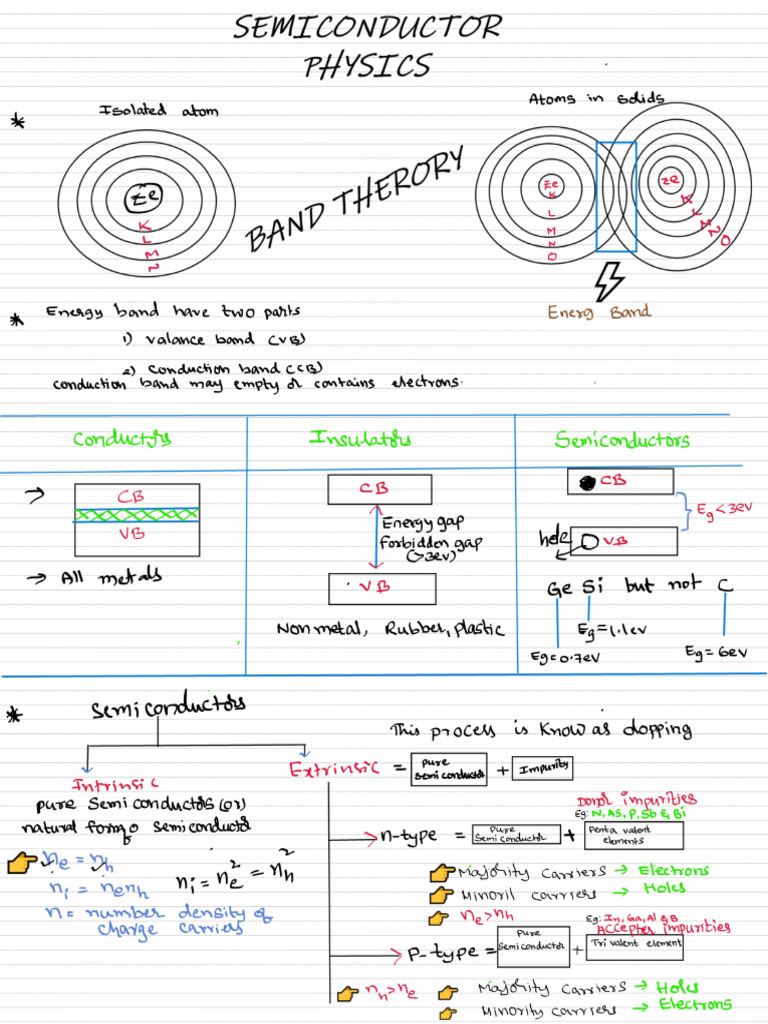 SEMICONDUCTOR
PHYSICS
Isolated atom
Atoms in solids
BAND THERORY
Ze
K
L
M
N
Ze
K
L
M
N
O
Ze
K
L
M
N
O
Energ Band
* Energy band have two parts
1) valance band (VB)
2) conduction band (CB)
conduction band may empty or contains electrons.
Conductors
Insulators
Semiconductors
CB
VB
→ All metals
CB
Energy gap
forbidden gap
(>3ev)
VB
Non metal, Rubber, plastic
CB
Eg<3ev
hole
VB
Ge Si but not C
Eg=0.7ev
Eg=1.1ev
Eg=6ev
* Semiconductors
This process is Know as dopping
Intrinsic
pure Semiconductors (or)
natural form of semiconductor
ne = nh
ni = nenh
ni = ne² = nh²
n = number density of
charge carriers
Extrinsic = pure semiconductor + Impurity
Donor impurities
Eg: N, AS, P, Sb & Bi
→ n-type = pure semiconductor + Penta valent elements
Majority Carriers → Electrons
Minoril carriers → Holes
ne>nh
Eg: In, Ga, Al & B
Accepter impurities
→ P-type = pure semiconductor + Tri valent element
nh>ne
Majority Carriers → Holes
Minority Carriers → Electrons